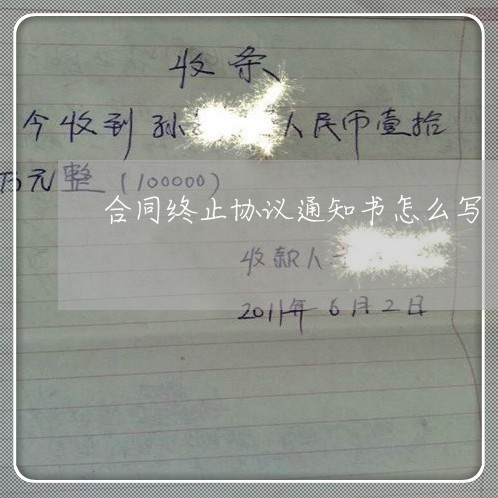 收条
今收到孙 人民币壹拾
万元整(100000)
合同终止协议通知书怎么写
收款人
2011年6月2日